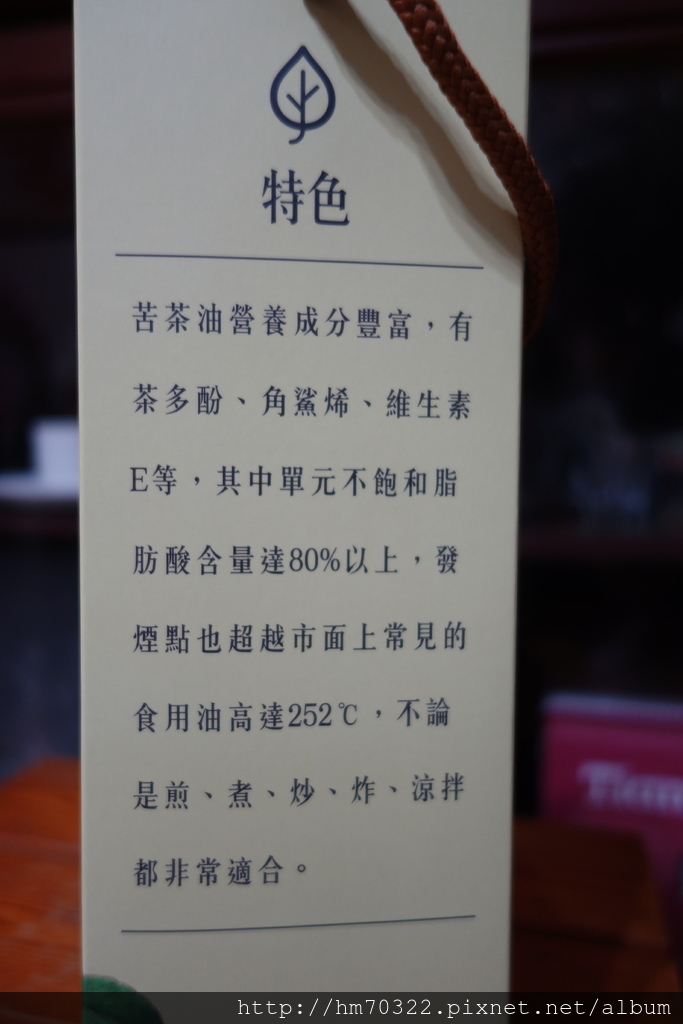 特色
苦茶油營養成分豐富，有
茶多酚、角鯊烯、維生素
E等，其中單元不飽和脂
肪酸含量達80%以上，發
煙點也超越市面上常見的
食用油高達252℃，不論
是煎、煮、炒、炸、涼拌
都非常適合。
http://hm70322.pixnet.net/album